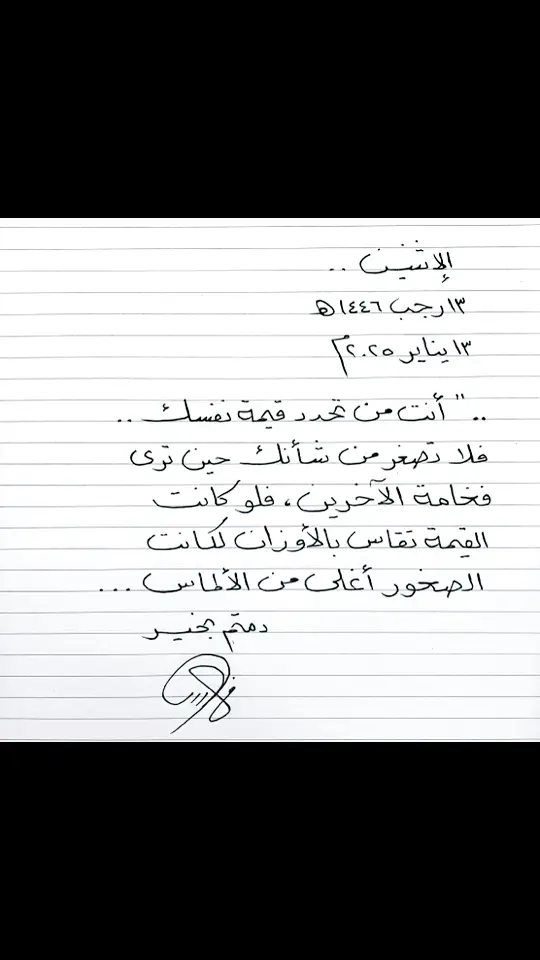 الإثنين ..
١٣ رجب ١٤٤٦هـ
١٣ يناير ٢٠٢٥م
.. " أنت من تحدد قيمة نفسك ..
فلا تصغر من شأنك حين ترى
فخامة الآخرين ، فلو كانت
القيمة تقاس بالأوزان لكانت
الصخور أغلى من الألماس ...
دمتم بخير